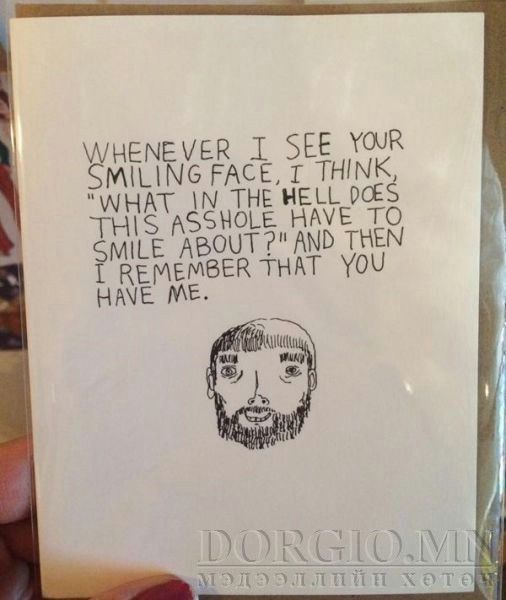 WHENEVER I SEE YOUR
SMILING FACE, I THINK,
"WHAT IN THE HELL DOES
THIS ASSHOLE HAVE TO
SMILE ABOUT?" AND THEN
I REMEMBER THAT YOU
HAVE ME.
DORGIO.MN
МЭДЭЭЛЛИЙН ХӨТӨЧ